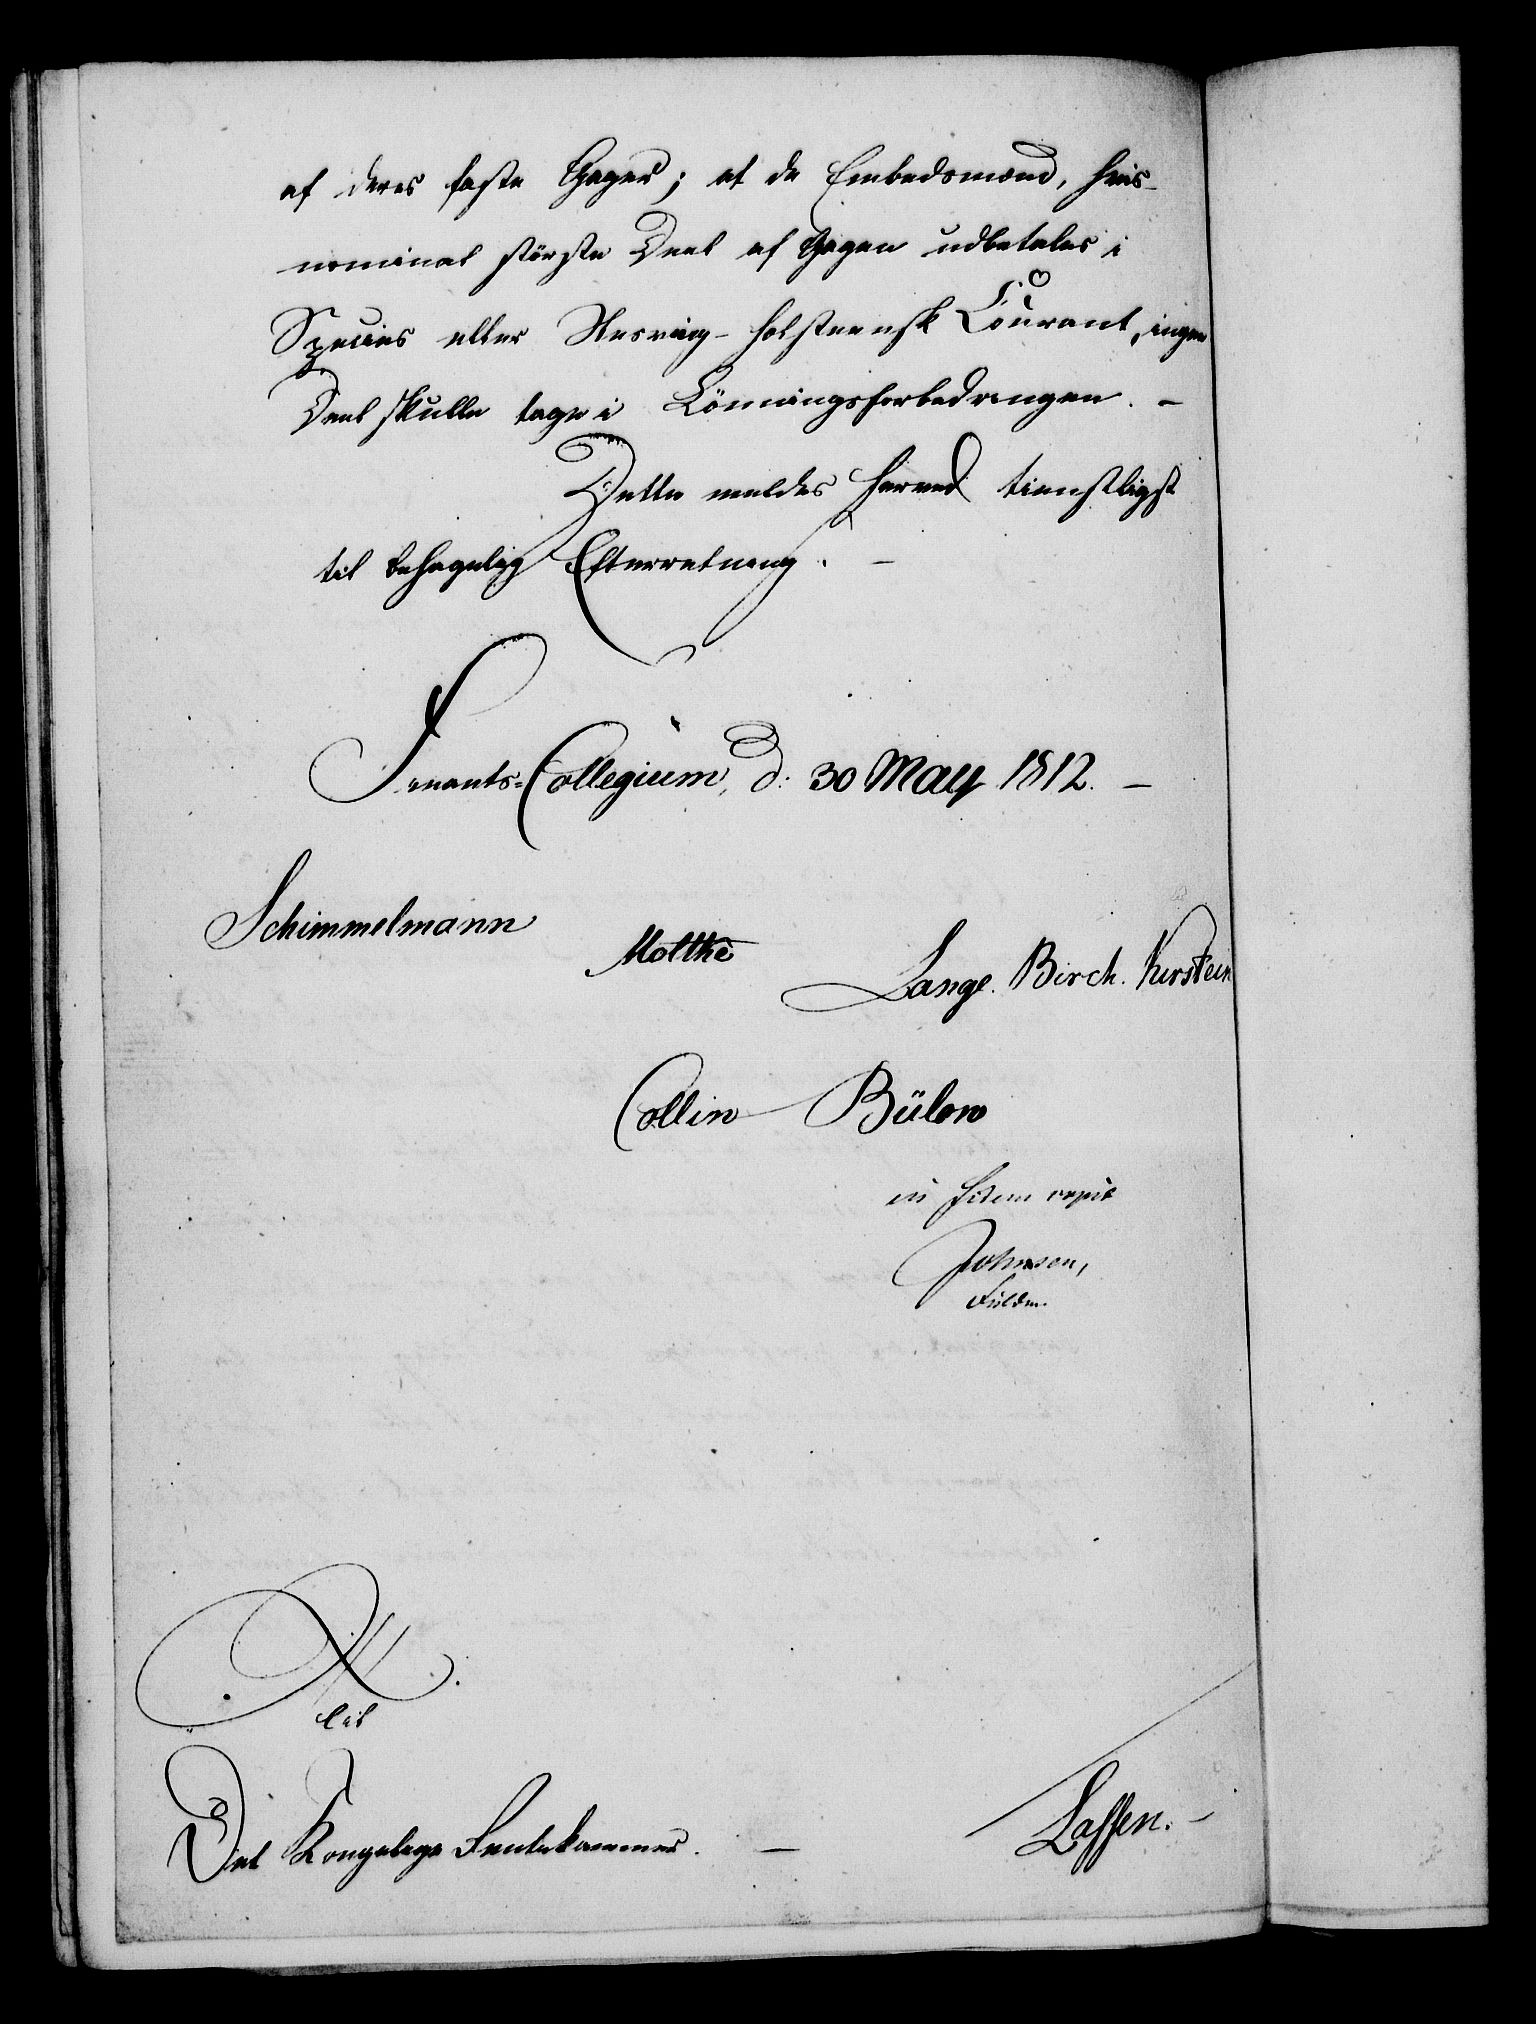 af deres faste Gager; at de Embedsmænd, hvis
nominal störste Deel af Gagen udbetales i
Species eller Slesvig-holsteensk Courant, ingen
Deel skulle tage i Lönningsforbedringen. –
Dette meldes herved tienstligst
til behagelig Efterretning. –
Finants-Collegium, d: 30 May 1812. –
Schimmelmann
Moltke
Lange. Birch. Kirstein
Collin Bülow
in fidem
Johnsen,
Fuldm.
Til
Det Kongelige Rentekammer. –
Lassen. –